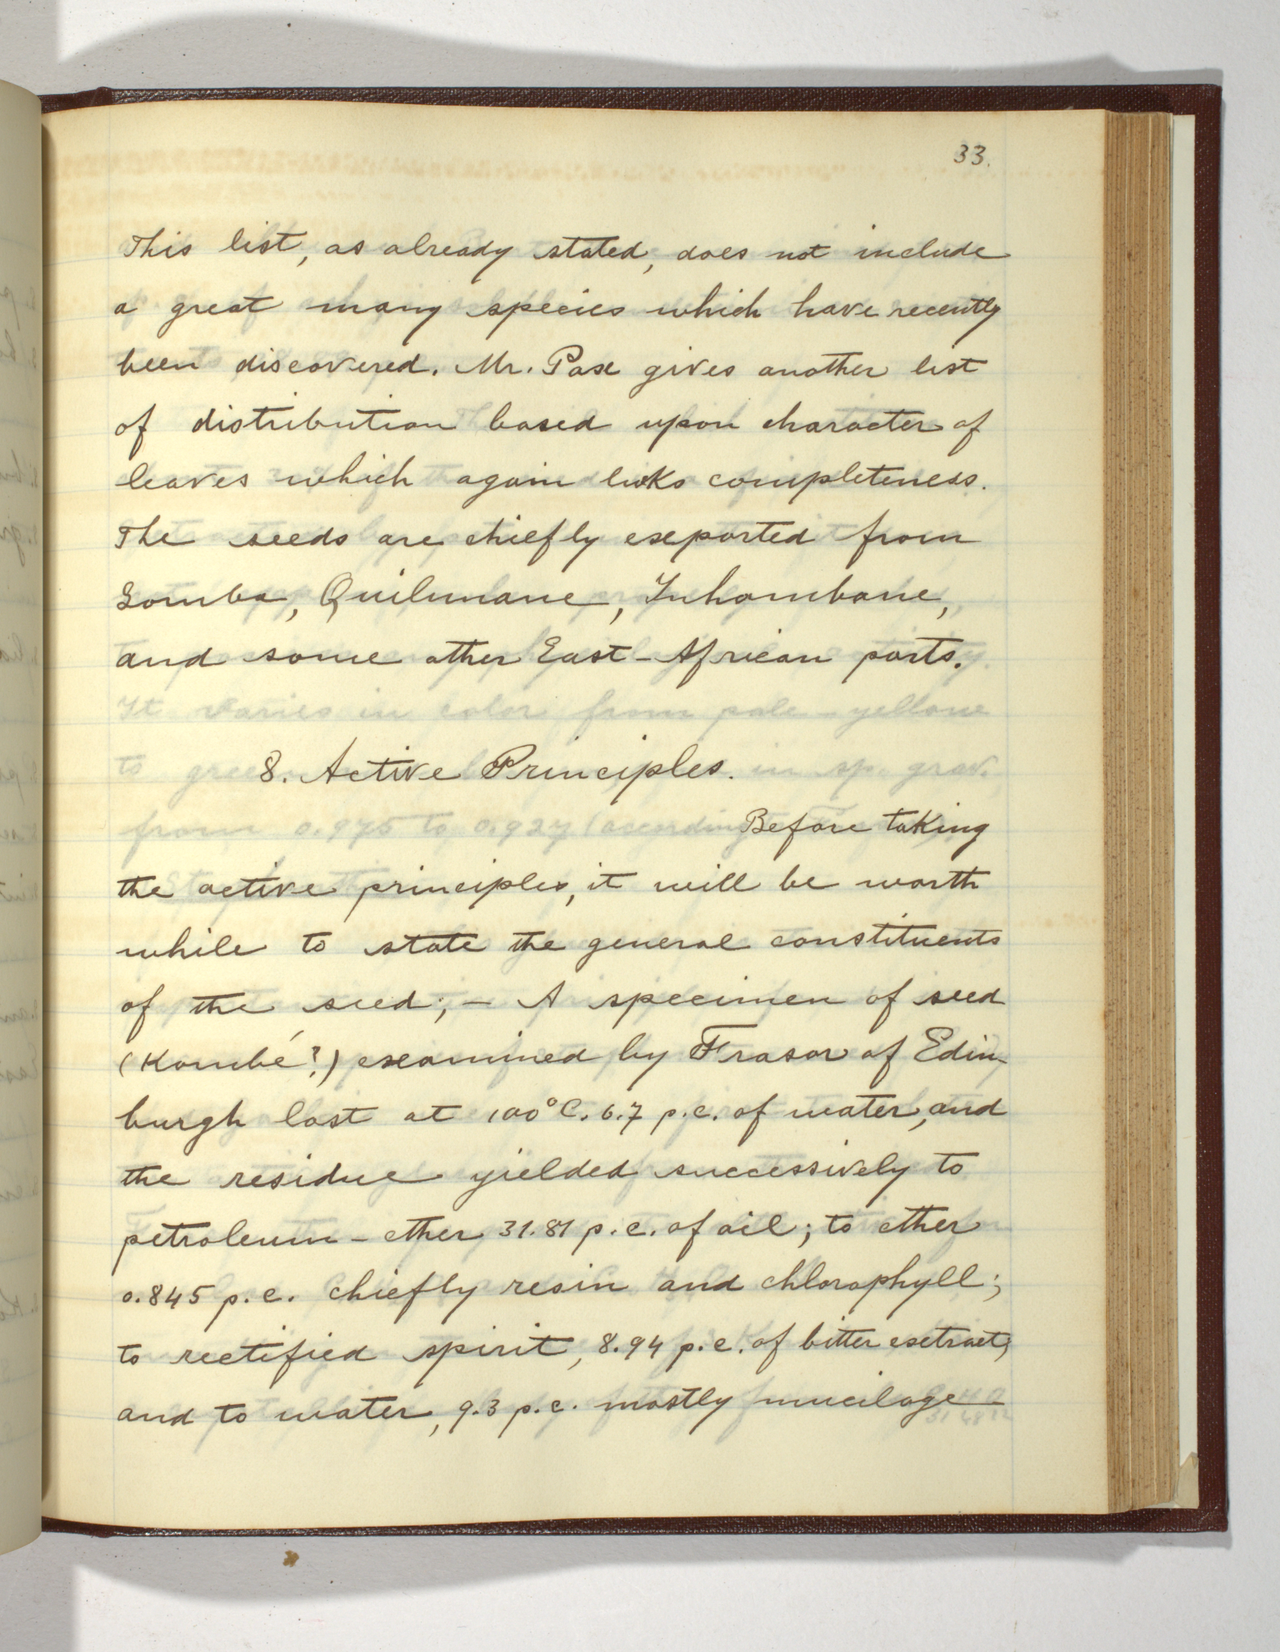 33.
This list, as already stated, does not include
a great many species which have recently
been discovered. Mr. Pax gives another list
of distribution based upon character of
leaves which again lacks completeness.
The seeds are chiefly exported from
Somba, Quilimane, Inhambane,
and some other East-African ports.
8. Active Principles.
Before taking
the active principles, it will be worth
while to state the general constituents
of the seed; — A specimen of seed
(Kombé?) examined by Frasor of Edin-
burgh lost at 100°C. 6.7 p.c. of water, and
the residue yielded successively to
petroleum-ether 31.81 p.c. of oil; to ether
0.845 p.c. chiefly resin and chlorophyll;
to rectified spirit, 8.94 p.c. of bitter extract;
and to water, 9.3 p.c. mostly mucilage
It varies in color from pale-yellow
to green in sp. grav.
from 0.975 to 0.927 (according